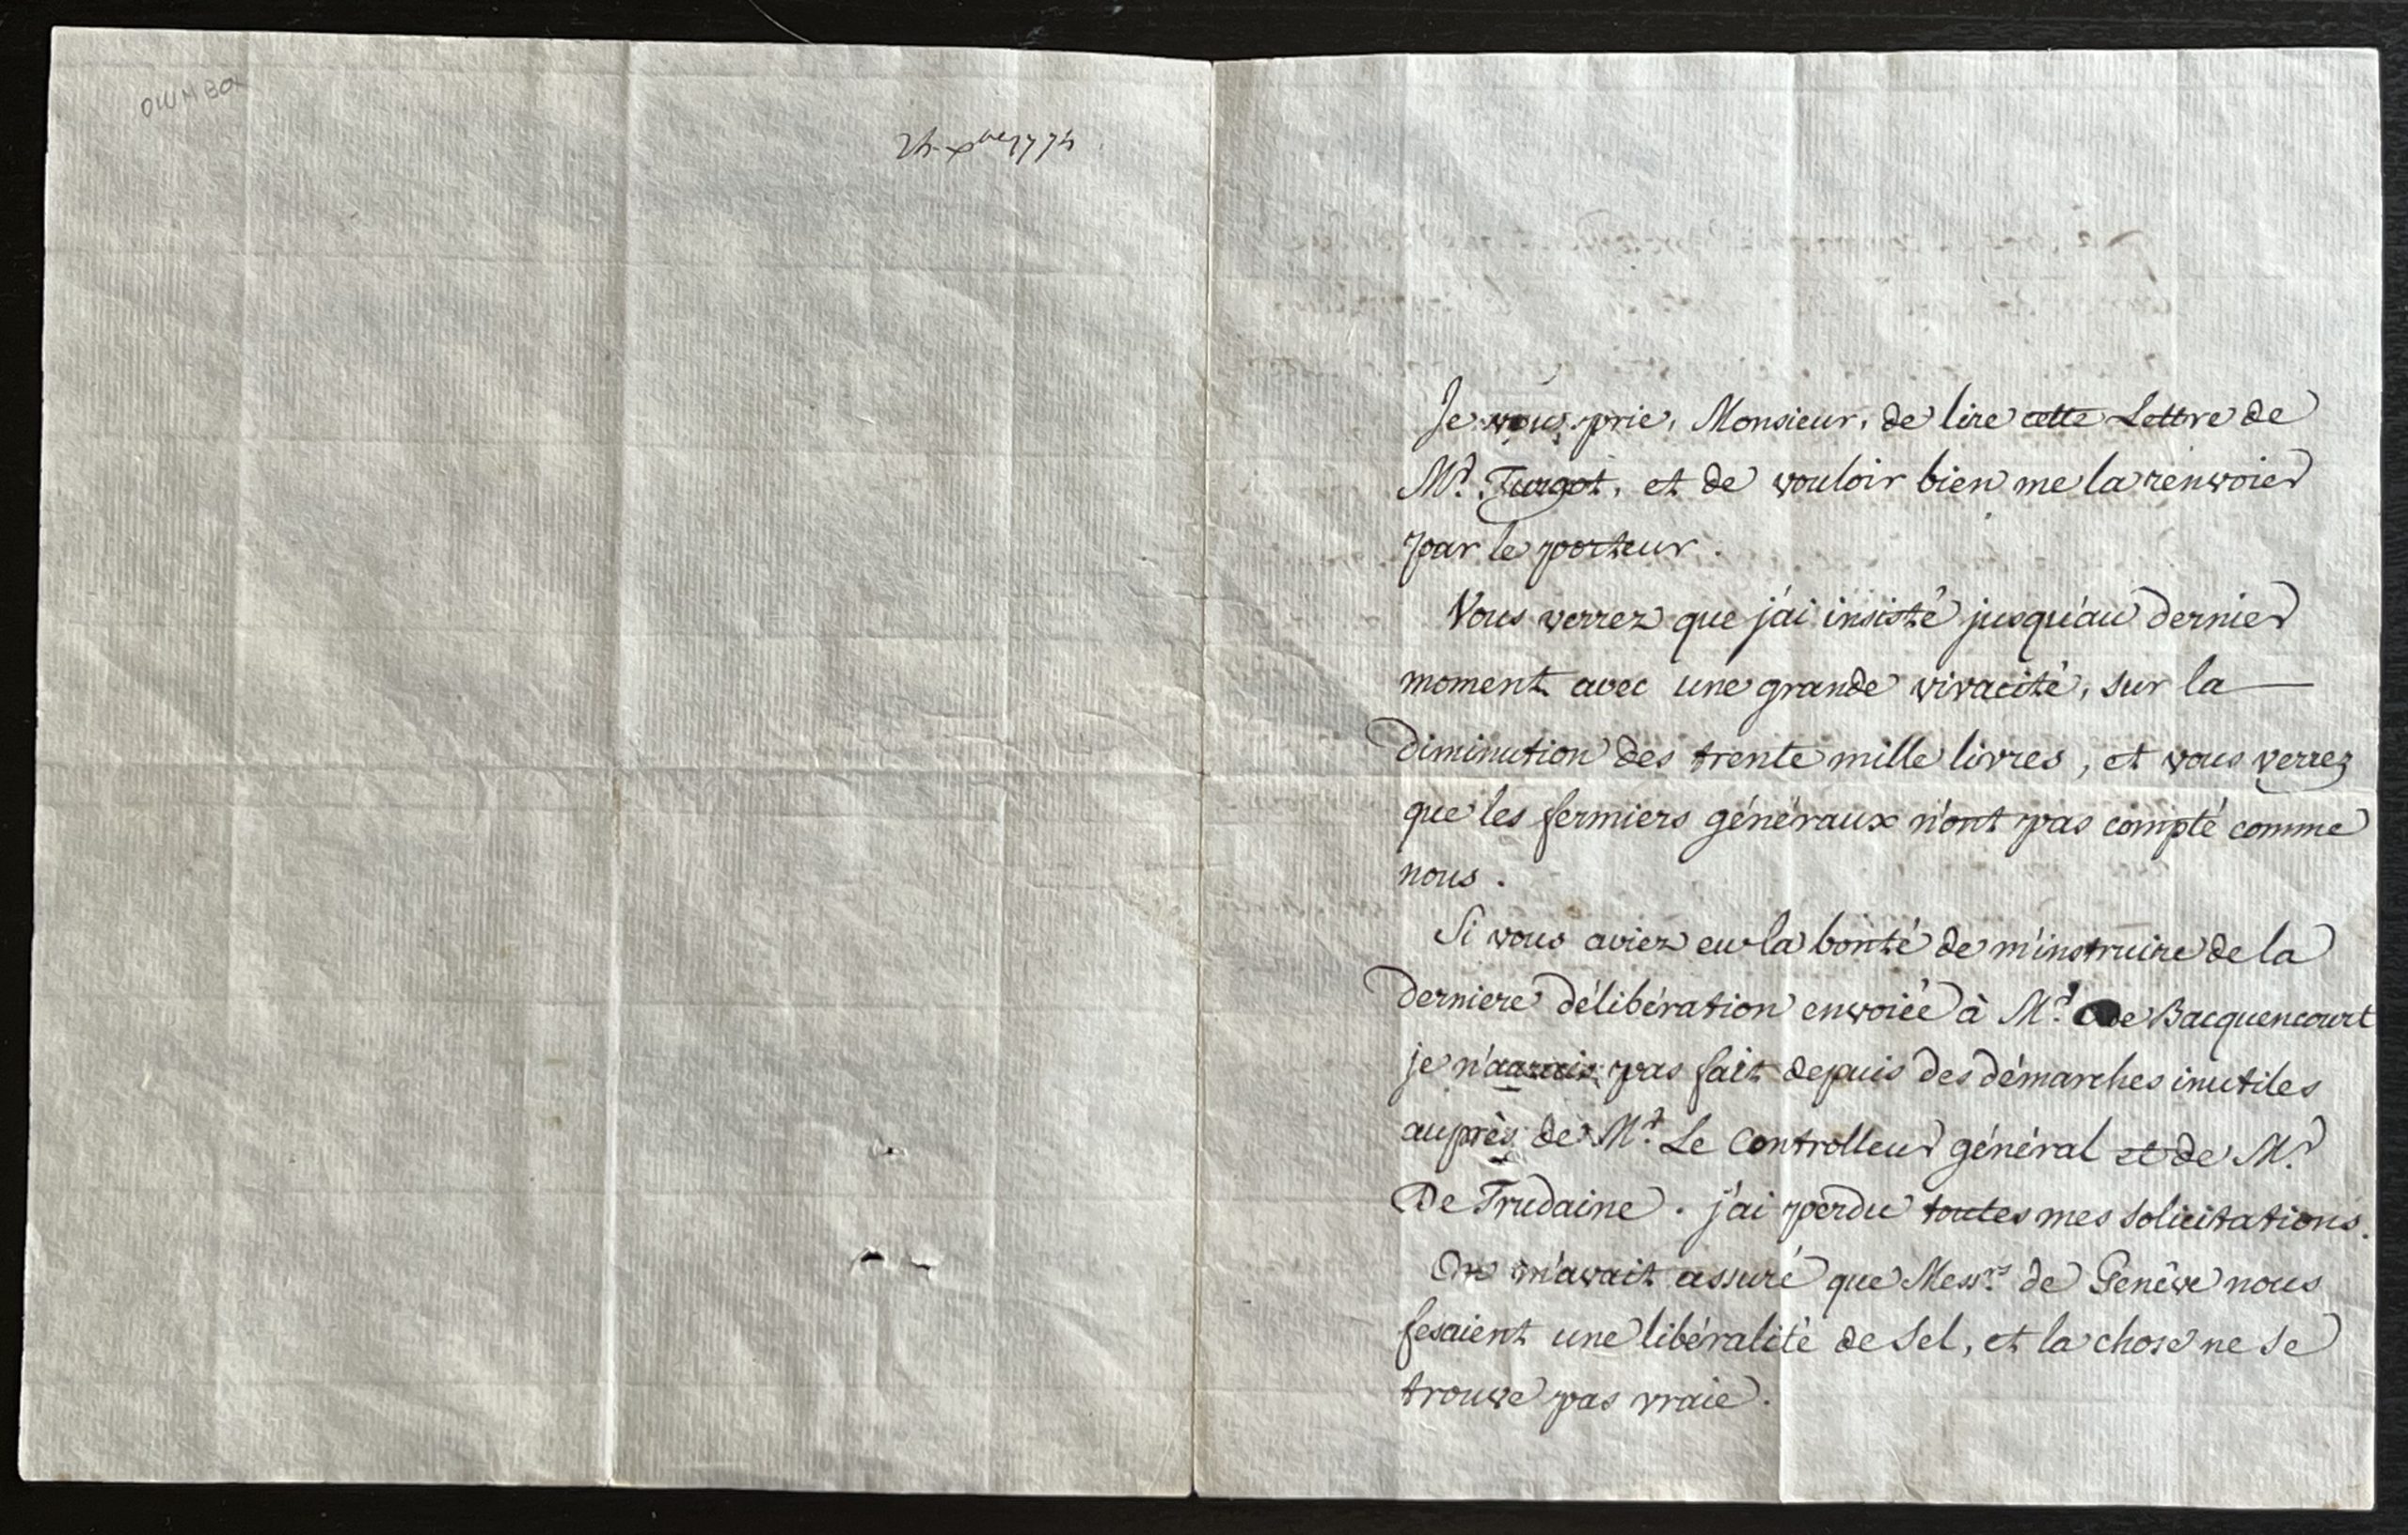 Je vous prie, Monsieur, de lire cette Lettre de
Mr. Turgot, et de vouloir bien me la renvoier
par le porteur.
Vous verrez que j'ai insisté jusqu'au dernier
moment avec une grande vivacité, sur la
diminution des trente mille livres, et vous verrez
que les fermiers généraux n'ont pas compté comme
nous.
Si vous aviez eu la bonté de m'instruire de la
derniere délibération envoiée à Mr. de Bacquencourt
je n'aurais pas fait depuis des démarches inutiles
auprès de Mr. Le Controlleur général et de Mr.
De Trudaine. j'ai perdu toutes mes solicitations.
On m'avait assuré que Messrs. de Genêve nous
fesaient une libéralité de sel, et la chose ne se
trouve pas vraie.